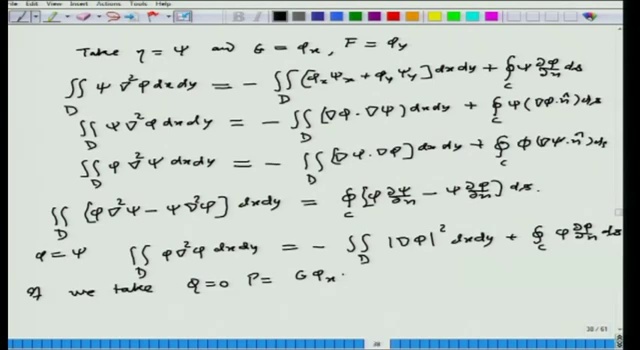 Take η = Ψ and G = φ_x, F = φ_y
∬_D Ψ ∇²φ dx dy = - ∬_D [φ_x Ψ_x + φ_y Ψ_y] dx dy + ∮_C Ψ ∂φ/∂n ds
∬_D Ψ ∇²φ dx dy = - ∬_D (∇φ · ∇Ψ) dx dy + ∮_C Ψ (∇φ · n̂) ds
∬_D φ ∇²Ψ dx dy = - ∬_D [∇Ψ · ∇φ] dx dy + ∮_C φ (∇Ψ · n̂) ds
∬_D [φ ∇²Ψ - Ψ ∇²φ] dx dy = ∮_C [φ ∂Ψ/∂n - Ψ ∂φ/∂n] ds.
φ = Ψ ∬_D φ ∇²φ dx dy = - ∬_D |∇φ|² dx dy + ∮_C φ ∂φ/∂n ds
If we take Q = 0 P = G φ_x .
38 / 61
38